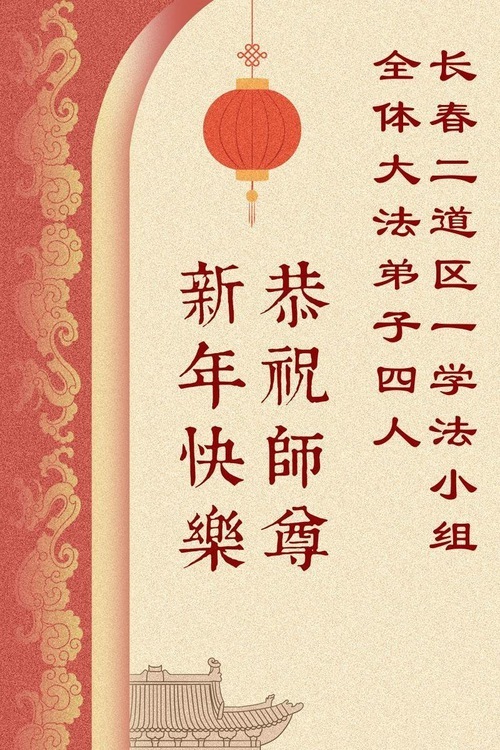 长春二道区一学法小组
全体大法弟子四人
恭祝師尊
新年快樂